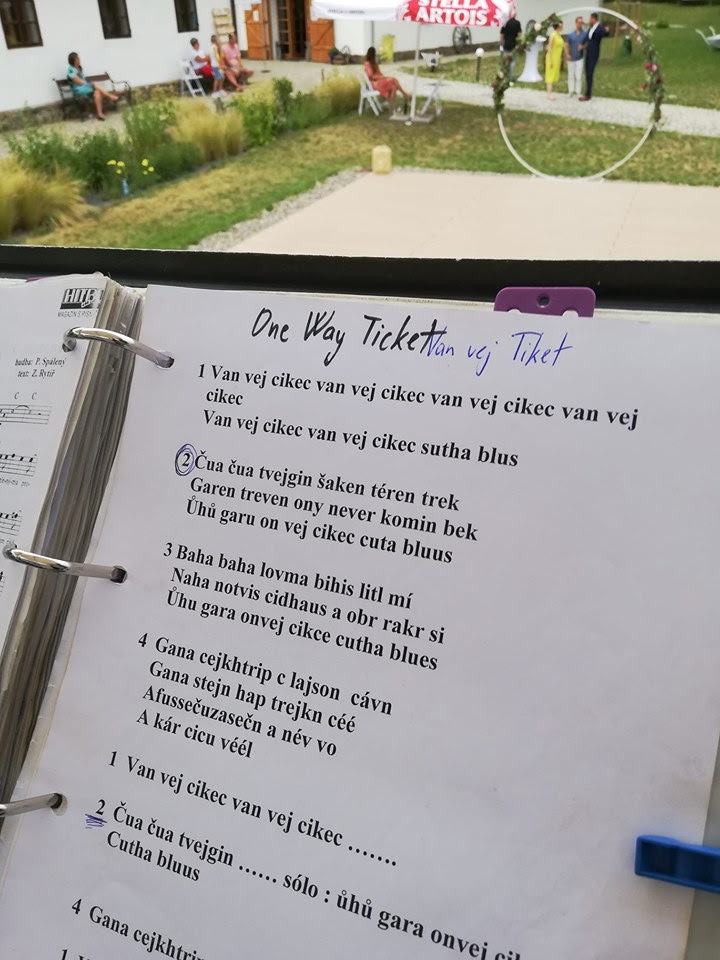 STELLA
ARTOIS
HITB
MAGAZÍN S PÍSN
hudba: P. Spálený
text: Z. Rytíř
C C
One Way Ticket Van vej Tiket
1 Van vej cikec van vej cikec van vej cikec van vej
cikec
Van vej cikec van vej cikec sutha blus
2 Čua čua tvejgin šaken téren trek
Garen treven ony never komin bek
Ůhů garu on vej cikec cuta bluus
3 Baha baha lovma bihis litl mí
Naha notvis cidhaus a obr rakr si
Ůhu gara onvej cikce cutha blues
4 Gana cejkhtrip c lajson cávn
Gana stejn hap trejkn céé
Afussečuzasečn a név vo
A kár cicu véél
1 Van vej cikec van vej cikec .......
2 Čua čua tvejgin ...... sólo : ůhů gara onvej
Cutha bluus
4 Gana